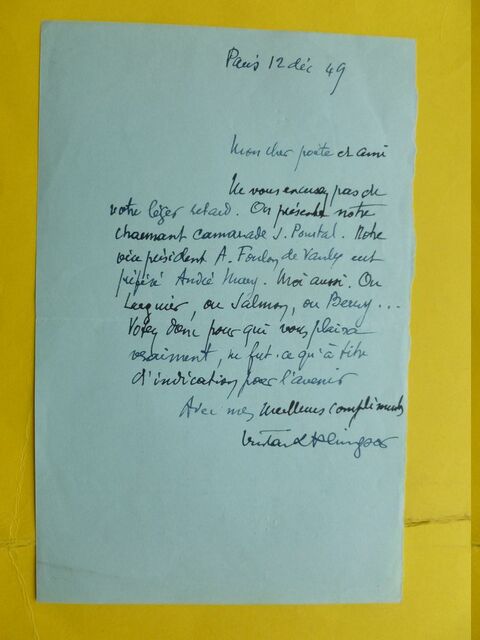 Paris 12 déc 49
Mon cher poète et ami
Ne vous excusez pas de
votre léger retard. On présente notre
charmant camarade J. Pourtal. Notre
vice président A. Foulon de Vaulx eut
préféré André Mary. Moi aussi. Ou
ou Salmon, ou Berry...
Votez donc pour qui vous plaira
vraiment, ne fut-ce qu'à titre
d'indication pour l'avenir
Avec mes meilleurs compliments
Tristan Klingsor